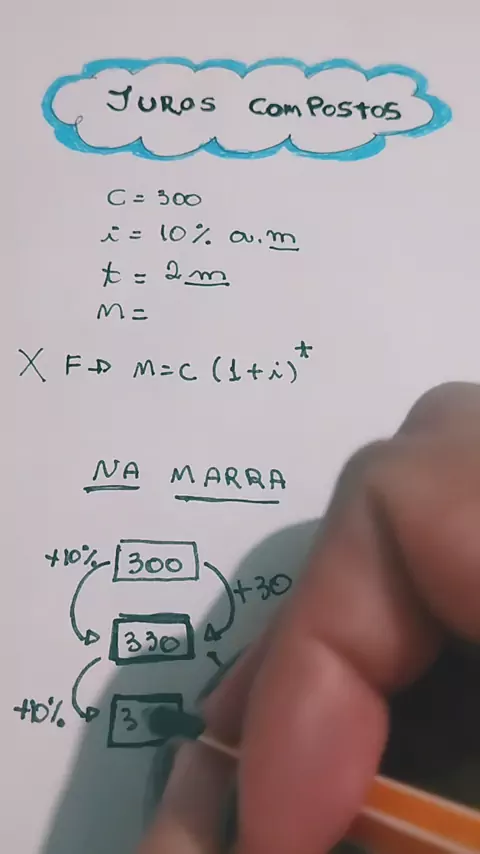 JUROS COMPOSTOS
C = 300
i = 10% a.m
t = 2m
M =
X F→ M=C (1+i)^t
NA MARRA
+10% 300
+30
330
+10% 3